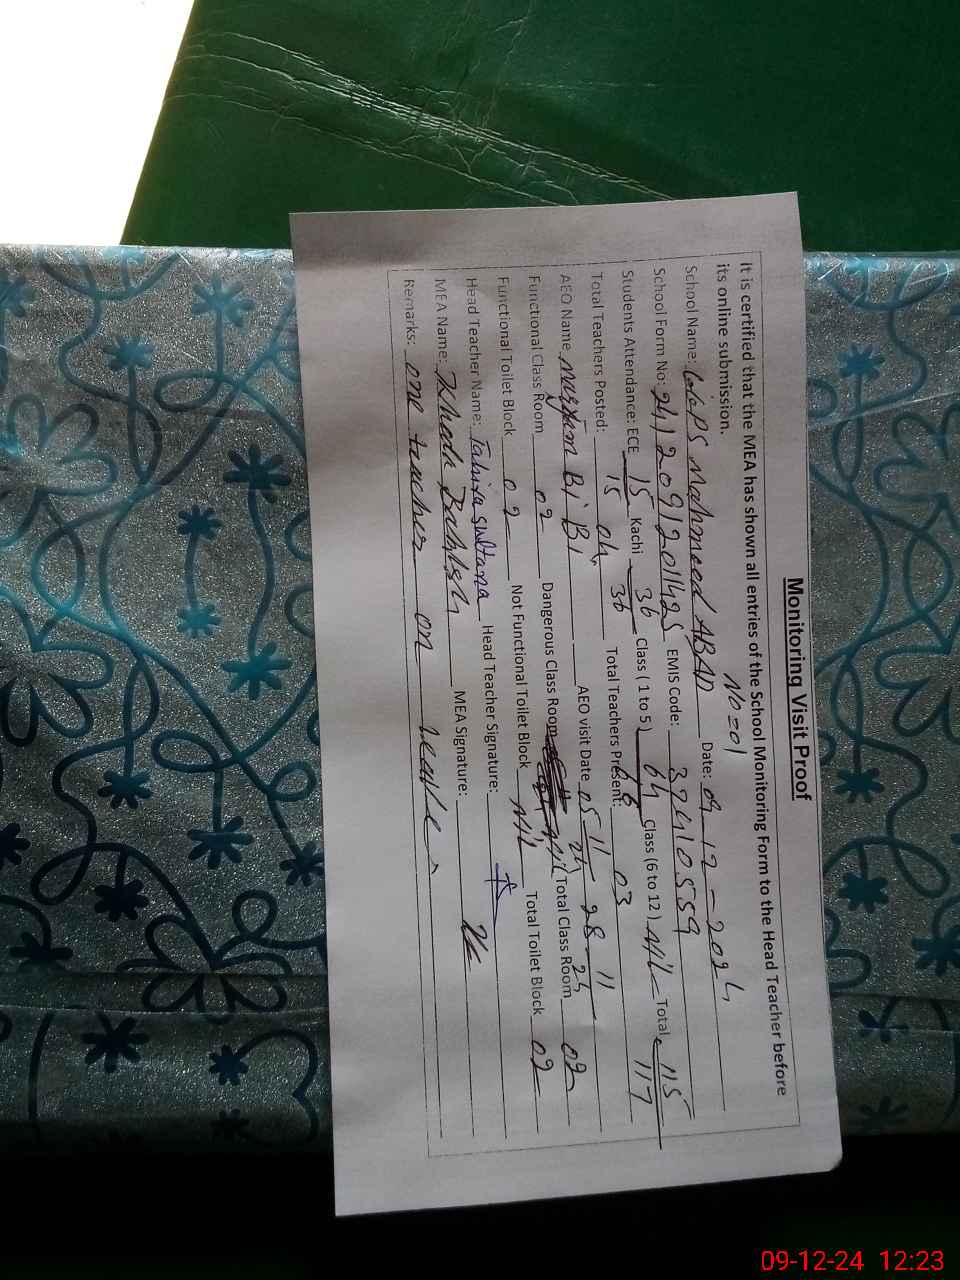 Monitoring Visit Proof
It is certified that the MEA has shown all entries of the School Monitoring Form to the Head Teacher before
its online submission.
No = 01
School Name: GGPS Mahmood ABAD Date: 09-12-2024
School Form No: 2412209/2011425 EMIS Code: 37410559
Students Attendance: ECE 15/15 Kachi 36/36 Class ( 1 to 5) 64/66 Class (6 to 12) Nil Total 115/117
Total Teachers Posted: 04 Total Teachers Present: 03
AEO Name BiBi AEO visit Date 05 11/24 28 11/24
Functional Class Room 02 Dangerous Class Room Nil Total Class Room 02
Functional Toilet Block 02 Not Functional Toilet Block Nil Total Toilet Block 02
Head Teacher Name: Tahira Sultana Head Teacher Signature:
MEA Name: Khuda Bakhsh MEA Signature:
Remarks: one teacher on leave.
09-12-24 12:23